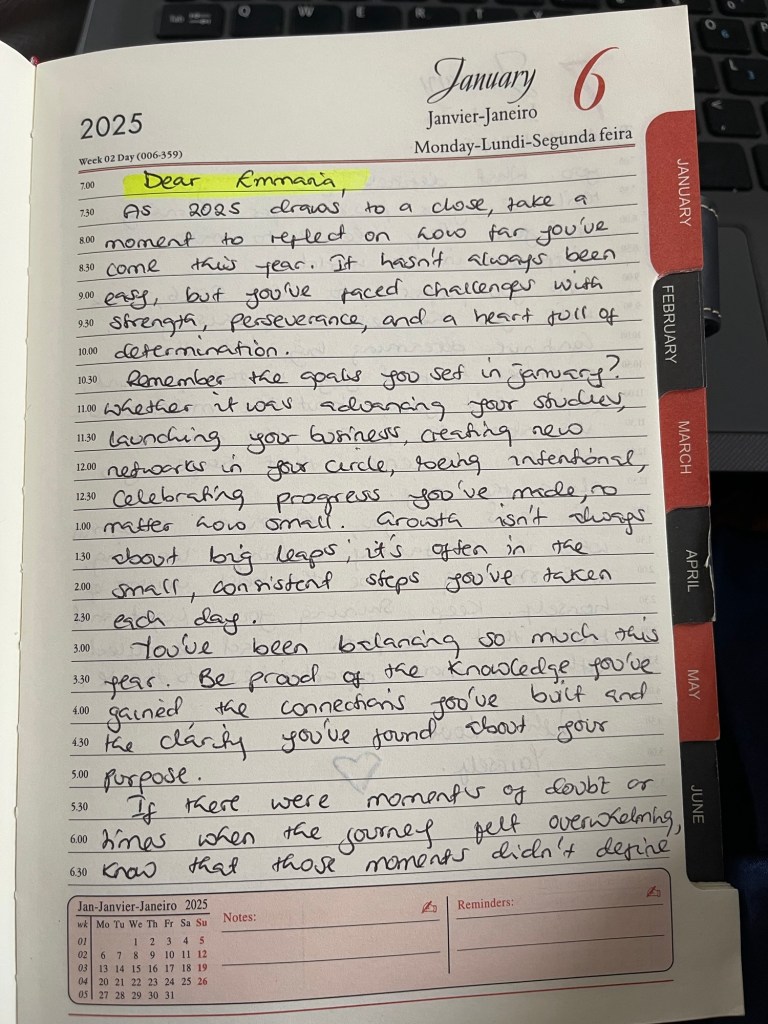 January 6
Janvier-Janeiro
2025
Week 02 Day (006-359)
Monday-Lundi-Segunda feira
7.00 Dear Emmania,
7.30 As 2025 draws to a close, take a
8.00 moment to reflect on how far you've
8.30 come this year. It hasn't always been
9.00 easy, but you've faced challenges with
9.30 strength, perseverance, and a heart full of
10.00 determination.
10.30 Remember the goals you set in january?
11.00 Whether it was advancing your studies,
11.30 launching your business, creating new
12.00 networks in your circle, being intentional,
12.30 celebrating progress you've made, no
1.00 matter how small. Growth isn't always
1.30 about big leaps; it's often in the
2.00 small, consistent steps you've taken
2.30 each day.
3.00 You've been balancing so much this
3.30 year. Be proud of the knowledge you've
4.00 gained the connections you've built and
4.30 the clarity you've found about your
5.00 purpose.
5.30 If there were moments of doubt or
6.00 times when the journey felt overwhelming,
6.30 know that those moments didn't define
JANUARY
FEBRUARY
MARCH
APRIL
MAY
JUNE
Jan-Janvier-Janeiro 2025
wk Mo Tu We Th Fr Sa Su
01 1 2 3 4 5
02 6 7 8 9 10 11 12
03 13 14 15 16 17 18 19
04 20 21 22 23 24 25 26
05 27 28 29 30 31
Notes:
Reminders: